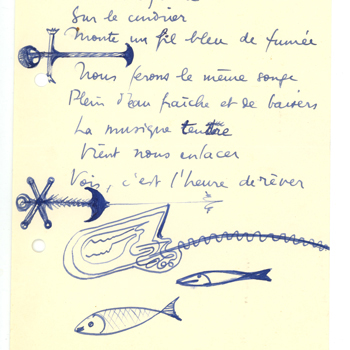 Sur le cendrier
Monte un fil bleu de fumée
Nous ferons le même songe
Plein d'eau fraîche et de baisers
La musique tendre
Vient nous enlacer
Vois, c'est l'heure de rêver